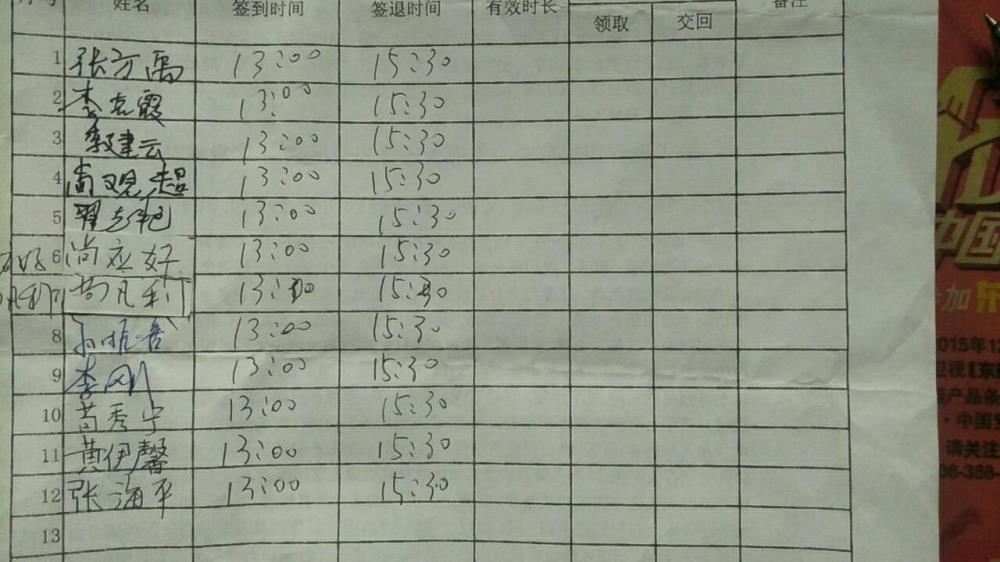 姓名 签到时间 签退时间 有效时长 备注
领取 交回
1 张方禹 13:00 15:30
2 李克霞 13:00 15:30
3 建云 13:00 15:30
4 尚观超 13:00 15:30
5 翟 13:00 15:30
6 尚应好 13:00 15:30
尚凡利 13:00 15:30
8 13:00 15:30
9 李刚 13:00 15:30
10 苗秀宁 13:00 15:30
11 黄伊馨 13:00 15:30
12 张海平 13:00 15:30
13
中国
加
2015年1
卫视【东
产品条
·中国
请关注